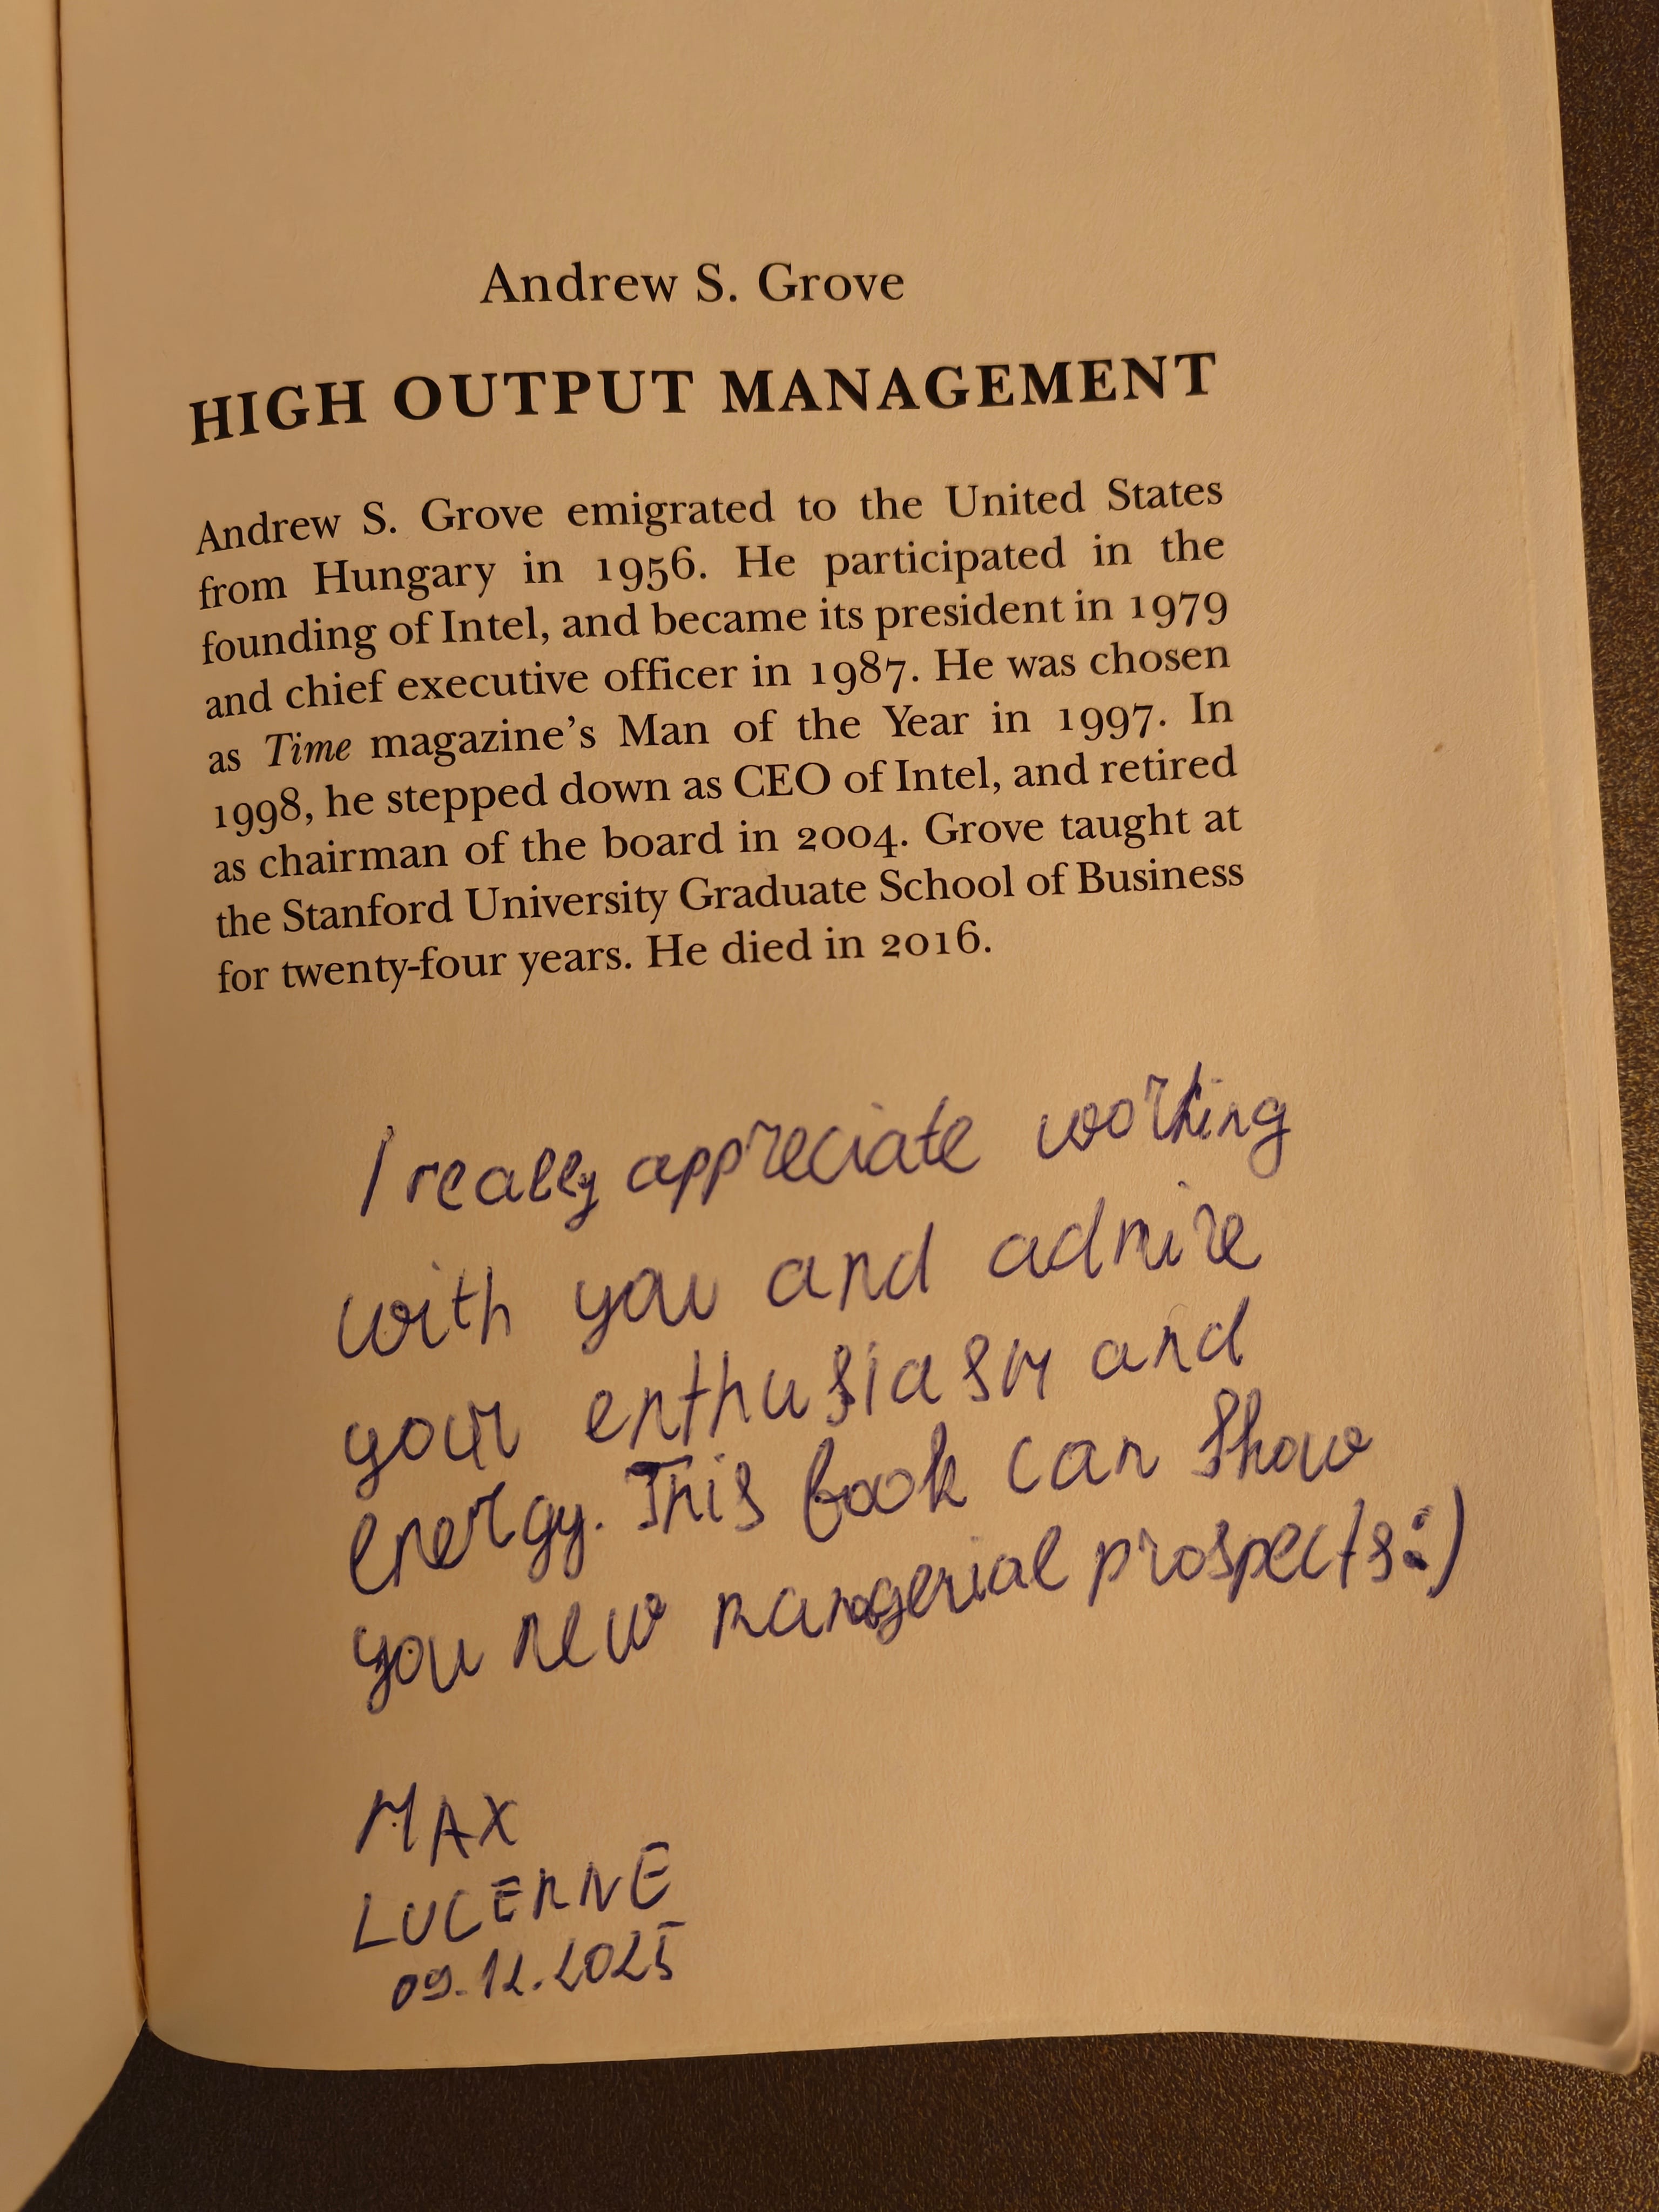 Andrew S. Grove
HIGH OUTPUT MANAGEMENT
Andrew S. Grove emigrated to the United States
from Hungary in 1956. He participated in the
founding of Intel, and became its president in 1979
and chief executive officer in 1987. He was chosen
as Time magazine's Man of the Year in 1997. In
1998, he stepped down as CEO of Intel, and retired
as chairman of the board in 2004. Grove taught at
the Stanford University Graduate School of Business
for twenty-four years. He died in 2016.
I really appreciate working
with you and admire
your enthusiasm and
energy. This book can show
you new managerial prospects:)
MAX
LUCERNE
09.12.2025